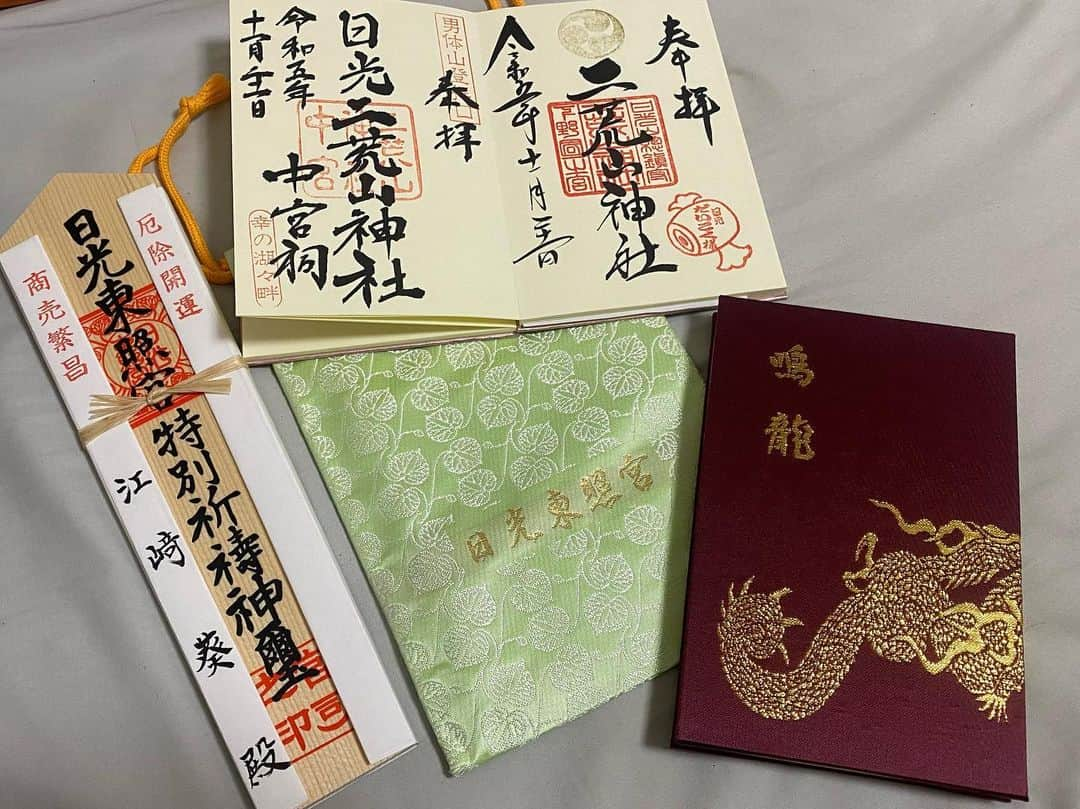 奉拝
二荒山神社
令和五年十一月
日光だいこく様
男体山登
奉拝
日光二荒山神社
中宮祠
令和五年
幸の湖々畔
厄除開運
日光東照宮特別祈祷神璽
商売繁昌
江崎葵殿
日光東照宮
鳴龍